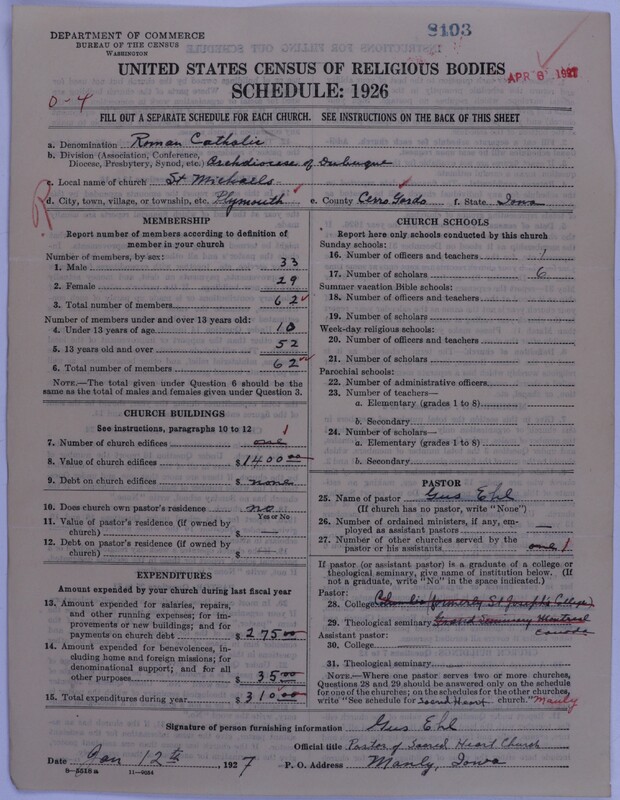 8103
DEPARTMENT OF COMMERCE
BUREAU OF THE CENSUS
WASHINGTON
UNITED STATES CENSUS OF RELIGIOUS BODIES
APR 8 1927
SCHEDULE: 1926
0-4
FILL OUT A SEPARATE SCHEDULE FOR EACH CHURCH. SEE INSTRUCTIONS ON THE BACK OF THIS SHEET
a. Denomination Roman Catholic
b. Division (Association, Conference, Diocese, Presbytery, Synod, etc.) Archdiocese of Dubuque
c. Local name of church St Michaels
d. City, town, village, or township, etc. Plymouth e. County Cerro Gordo f. State Iowa
MEMBERSHIP
Report number of members according to definition of
member in your church
Number of members, by sex:
1. Male 33
2. Female 29
3. Total number of members 62
Number of members under and over 13 years old:
4. Under 13 years of age 10
5. 13 years old and over 52
6. Total number of members 62
NOTE.—The total given under Question 6 should be
same as the total of males and females given under Question 3.
CHURCH BUILDINGS
See instructions, paragraphs 10 to 12
7. Number of church edifices one 1
8. Value of church edifices $1400.00
9. Debt on church edifices $ none
10. Does church own pastor's residence no
Yes or No
11. Value of pastor's residence (if owned by
church) $ —
12. Debt on pastor's residence (if owned by
church) $ —
EXPENDITURES
Amount expended by your church during last fiscal year
13. Amount expended for salaries, repairs,
and other running expenses; for im-
provements or new buildings; and for
payments on church debt $275.00
14. Amount expended for benevolences, in-
cluding home and foreign missions; for
denominational support; and for all
other purposes $35.00
15. Total expenditures during year $310.00
CHURCH SCHOOLS
Report here only schools conducted by this church
Sunday schools:
16. Number of officers and teachers 1
17. Number of scholars 6
Summer vacation Bible schools:
18. Number of officers and teachers
19. Number of scholars
Week-day religious schools:
20. Number of officers and teachers
21. Number of scholars
Parochial schools:
22. Number of administrative officers
23. Number of teachers—
a. Elementary (grades 1 to 8)
b. Secondary
24. Number of scholars—
a. Elementary (grades 1 to 8)
b. Secondary
PASTOR
25. Name of pastor Gus Ehl
(If church has no pastor, write "None")
26. Number of ordained ministers, if any, em-
ployed as assistant pastors —
27. Number of other churches served by the
pastor or his assistants one 1
If pastor (or assistant pastor) is a graduate of a college or
theological seminary, give name of institution below. (If
not a graduate, write "No" in the space indicated.)
Pastor:
28. College Columbia (formerly St Joseph's College)
29. Theological seminary Grand Seminary Montreal
Canada
Assistant pastor:
30. College
31. Theological seminary
NOTE.—Where one pastor serves two or more churches,
Questions 28 and 29 should be answered only on the schedule
for one of the churches; on the schedules for the other churches,
write "See schedule for Sacred Heart church." Manly
Signature of person furnishing information Gus Ehl
Official title Pastor of Sacred Heart Church
Date Jan 12th, 1927 P. O. Address Manly, Iowa
8-5518a 11-9054